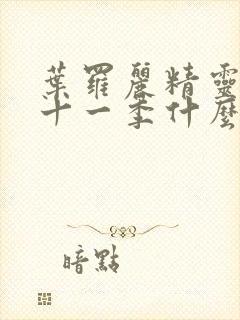 葉羅麗精靈
十一季什麼
暗點